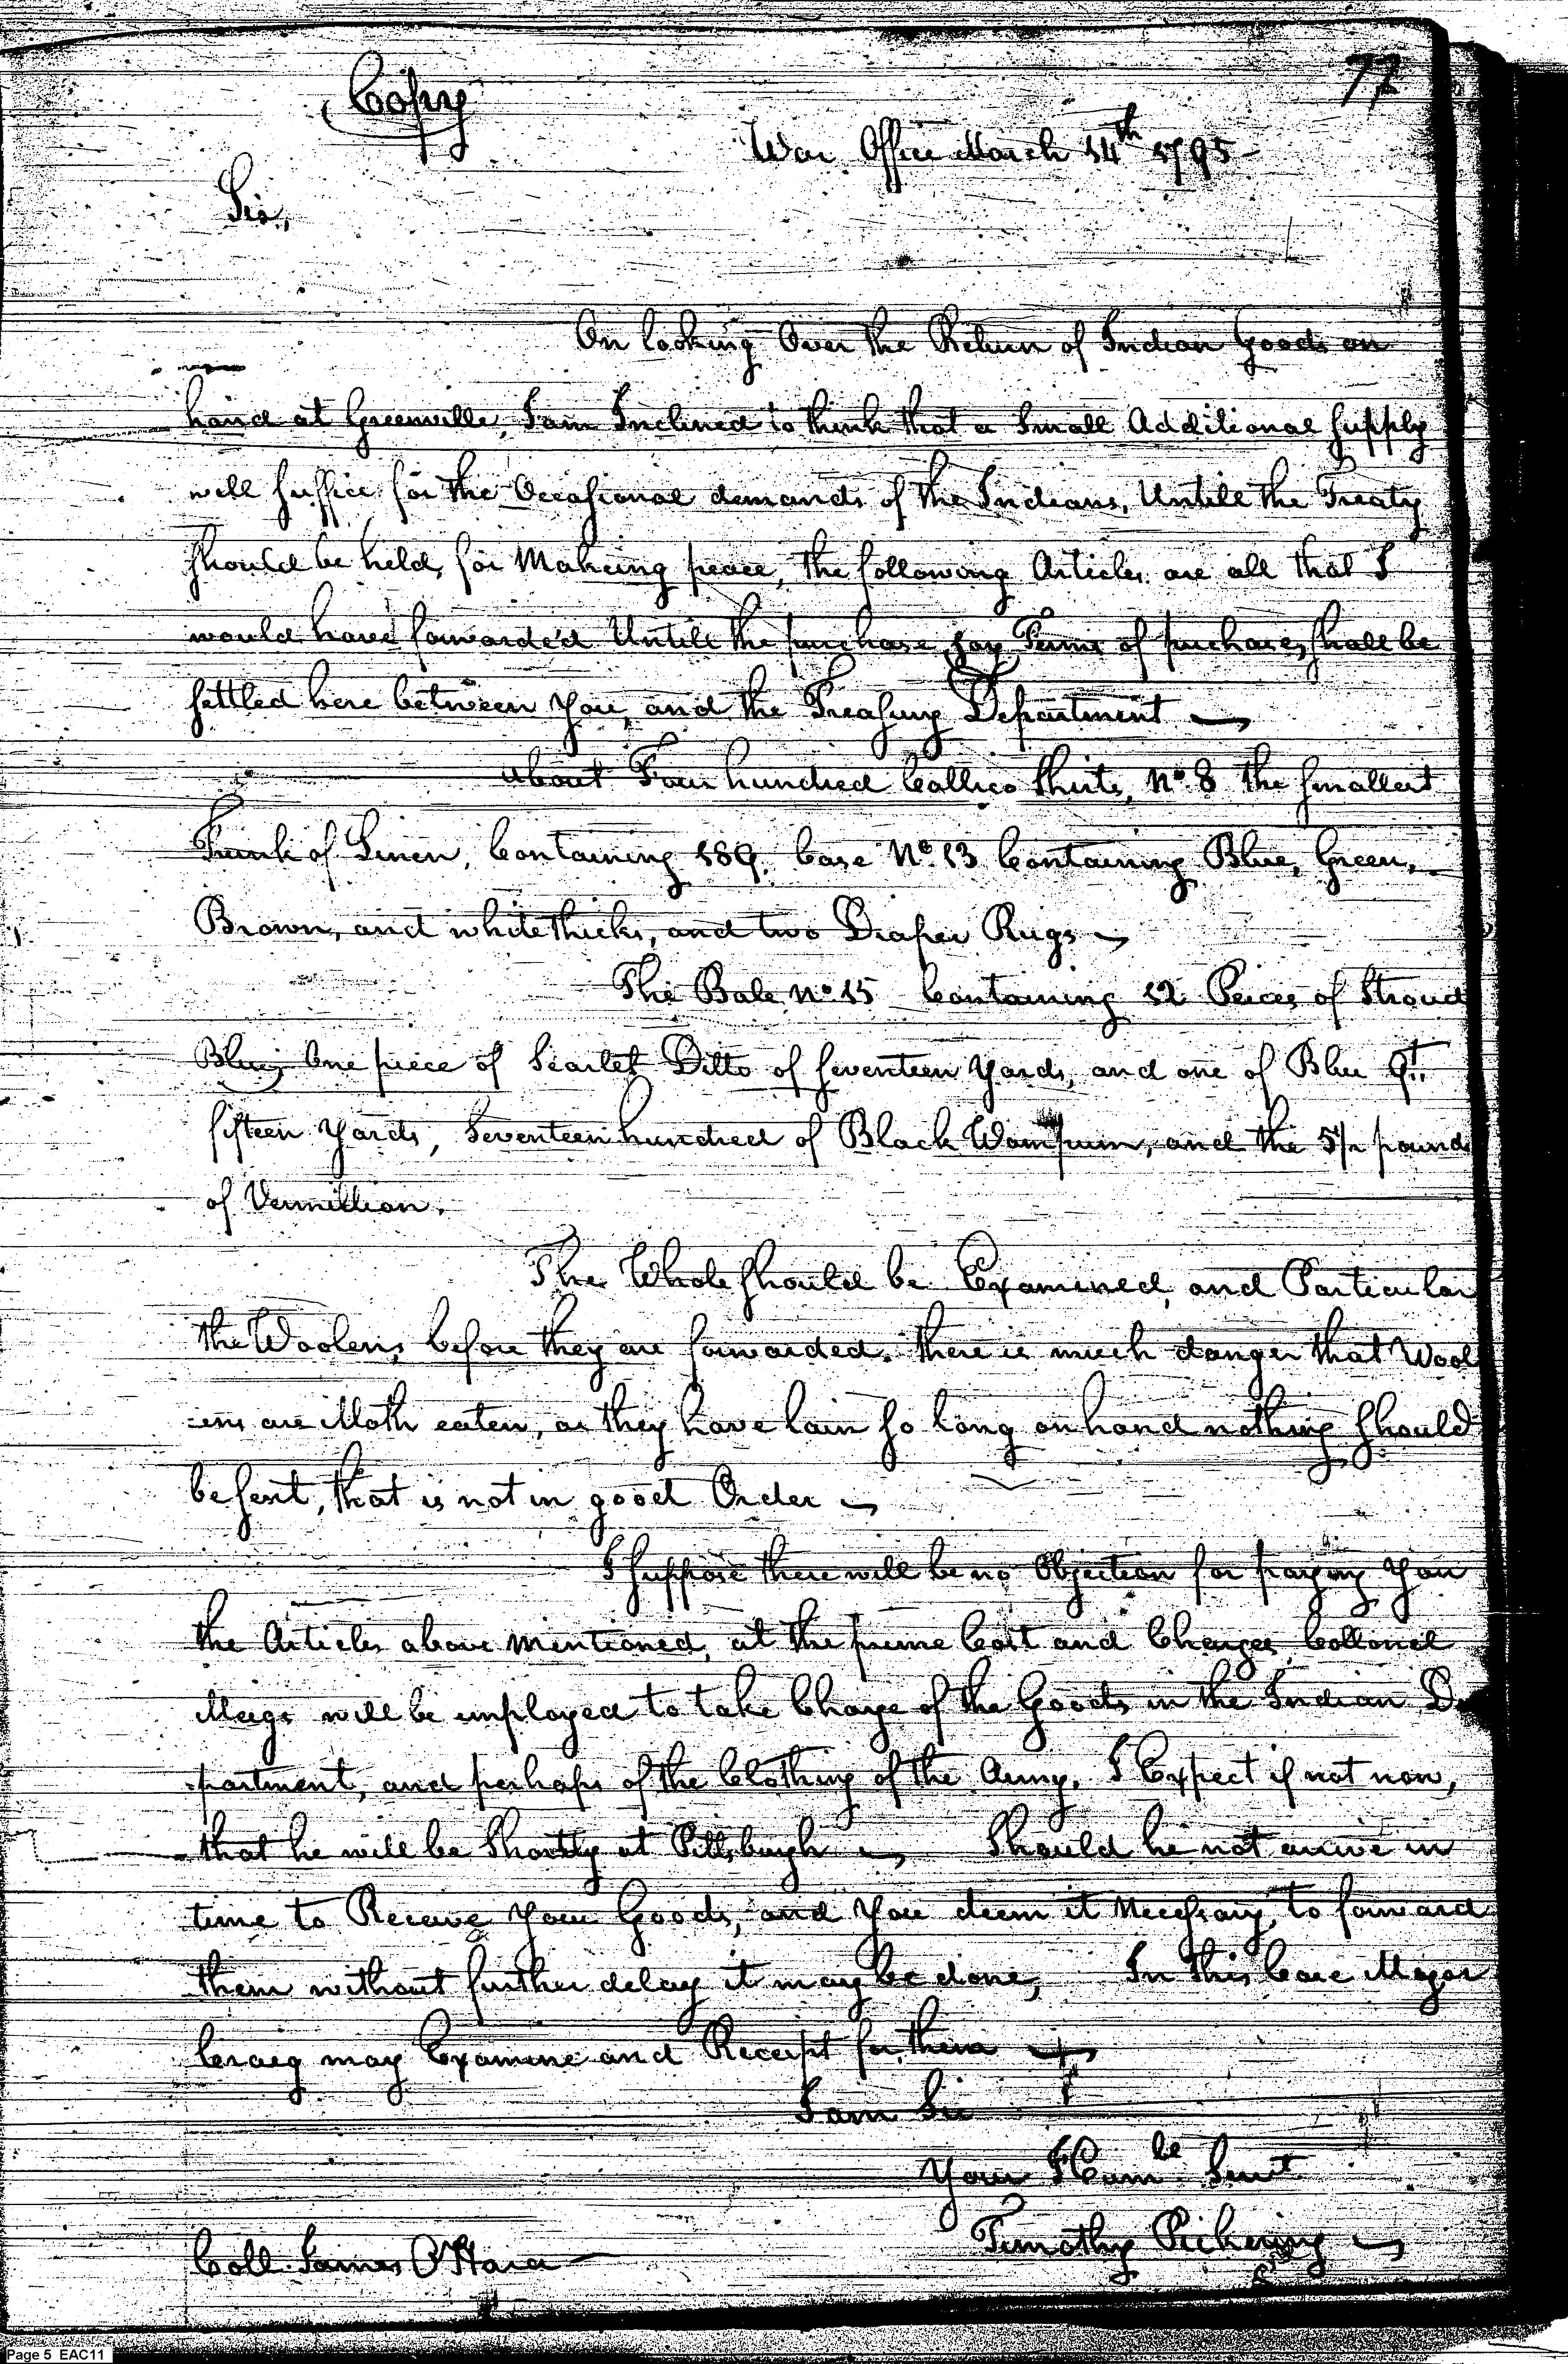 77
Copy
War Office March 14th 1795 -
Sir,
On looking Over the Return of Indian Goods on
hand at Greenville, I am Inclined to think that a Small Additional Supply
will Suffice for the Occasional demands of the Indians, Untill the Treaty
Should be held, for Makeing peace, the following Articles are all that I
would have forwarded Untill the purchase, say Terms of purchase, Shall be
Settled here between you, and the Treasury Department
about Four hundred Callico Shirts, No. 8 the Smallest
Trunk of Linen, Containing 189. Case No. 13 Containing Blue, Green,
Brown, and white thicks, and two Diaper Rugs
The Bale No. 15 Containing 12 Peices of Stroud
Blue; One piece of Scarlet Ditto of Seventeen Yards, and one of Blue qt.
fifteen Yards, Seventeen hundred of Black Wampum, and the 5½ pound
of Vermillion.
The Whole Should be Examined, and Particular
the Woolens, before they are forwarded. there is much danger that Wool
=ens are Moth eaten, as they have lain So long on hand nothing Should
be Sent, that is not in good Order
I Suppose there will be no Objection for paying You
the Articles above mentioned, at the prime Cost and Charges, Collonel
Meigs will be employed to take Charge of the Goods in the Indian De
partment, and perhaps of the Clothing of the Army. I Expect if not now,
that he will be Shortly at Pittsburgh Should he not arrive in
time to Receive Your Goods, and You deem it Necessary to forward
them without further delay it may be done, In this Case Major
Craeg may Examine and Receipt for them
I am Sir
Your Humbe Servt
Timothy Pickering
Coll. James O'Hara
Page 5 EAC11